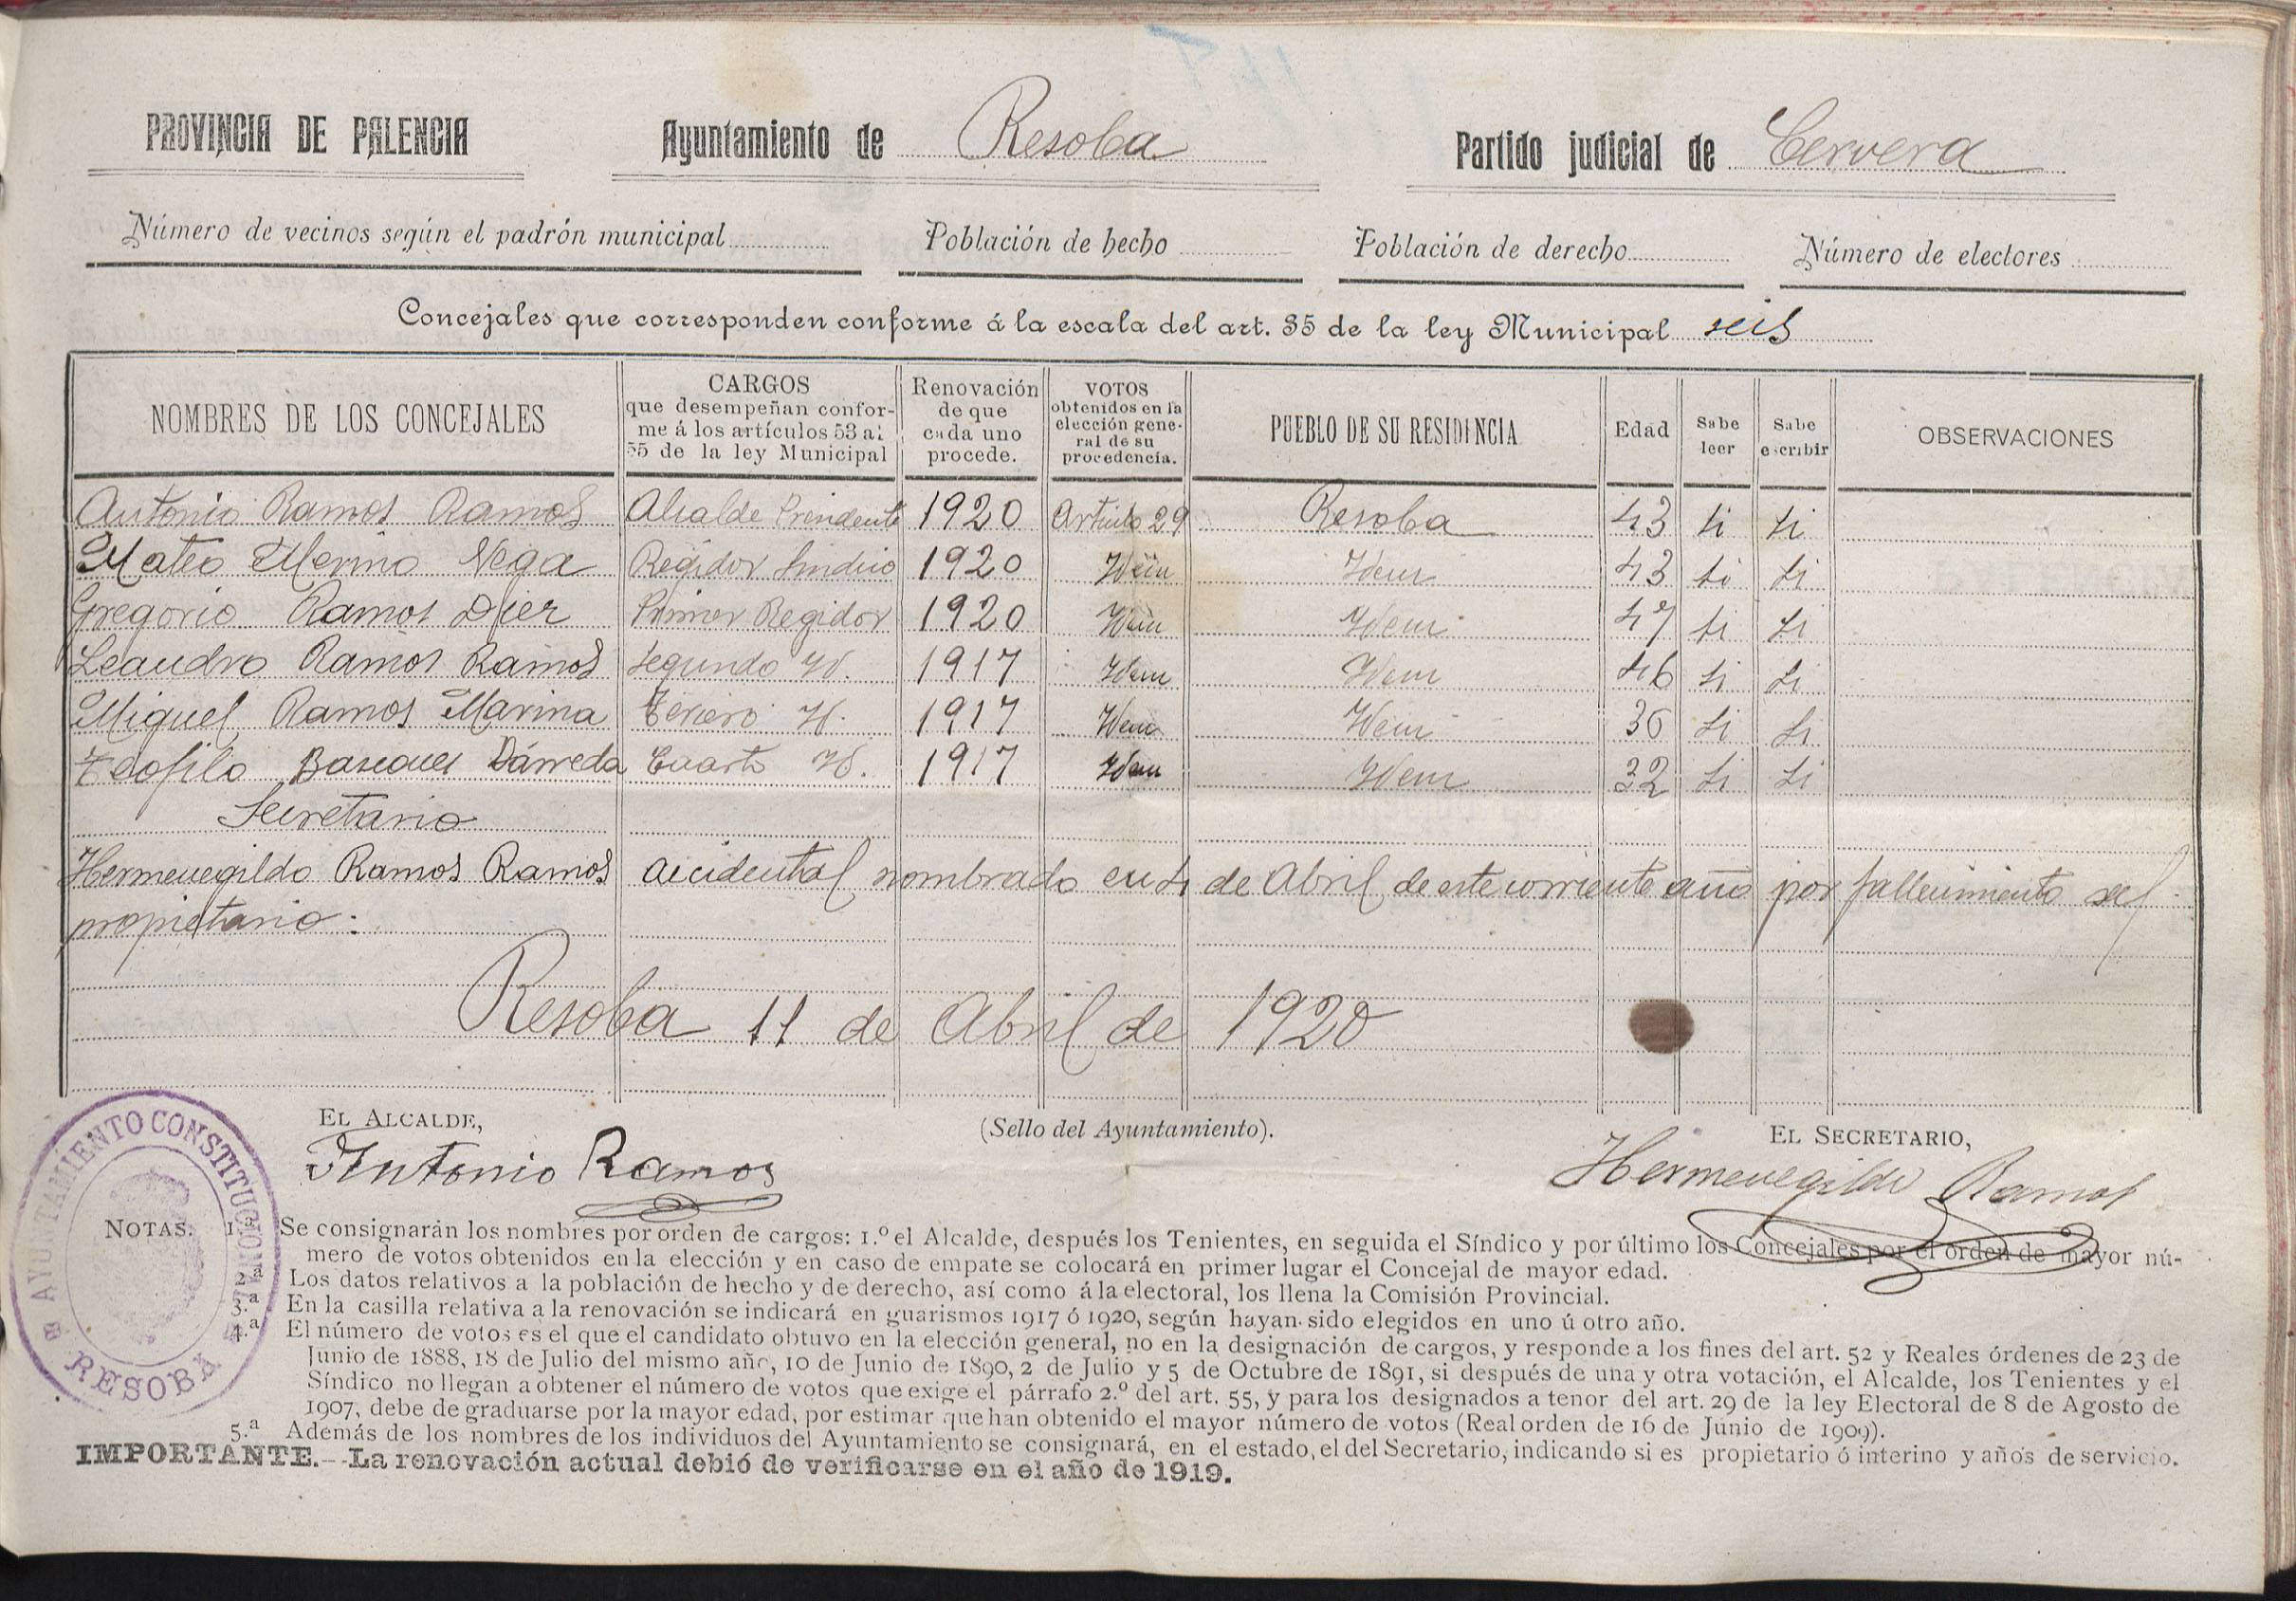 PROVINCIA DE PALENCIA Ayuntamiento de Resoba Partido judicial de Cervera
Número de vecinos según el padrón municipal Población de hecho Población de derecho Número de electores
Concejales que corresponden conforme á la escala del art. 35 de la ley Municipal seis
NOMBRES DE LOS CONCEJALES
CARGOS
que desempeñan confor-
me á los artículos 53 al
55 de la ley Municipal
Renovación
de que
cada uno
procede.
VOTOS
obtenidos en la
elección gene-
ral de su
procedencia.
PUEBLO DE SU RESIDENCIA
Edad
Sabe
leer
Sabe
escribir
OBSERVACIONES
Antonio Ramos Ramos Alcalde Presidente 1920 Articulo 29 Resoba 43 si si
Mateo Merino Vega Regidor Sindico 1920 Idem Idem 43 si si
Gregorio Ramos Dier Primer Regidor 1920 Idem Idem 47 si si
Leandro Ramos Ramos Segundo Id. 1917 Idem Idem 46 si si
Miguel Ramos Marina Tercero Id. 1917 Idem Idem 36 si si
Teofilo Cuarto Id. 1917 Idem Idem 32 si si
Secretario
Hermenegildo Ramos Ramos accidental nombrado en 4 de Abril de este corriente año por fallecimiento del
propietario.
Resoba 11 de Abril de 1920
EL ALCALDE, (Sello del Ayuntamiento). EL SECRETARIO,
Antonio Ramos Hermenegildo Ramos
AYUNTAMIENTO CONSTITUCIONAL
RESOBA
NOTAS. 1.ª Se consignarán los nombres por orden de cargos: 1.º el Alcalde, después los Tenientes, en seguida el Síndico y por último los Concejales por el orden de mayor nú-
mero de votos obtenidos en la elección y en caso de empate se colocará en primer lugar el Concejal de mayor edad.
2.ª Los datos relativos a la población de hecho y de derecho, así como á la electoral, los llena la Comisión Provincial.
3.ª En la casilla relativa a la renovación se indicará en guarismos 1917 ó 1920, según hayan sido elegidos en uno ú otro año.
4.ª El número de votos es el que el candidato obtuvo en la elección general, no en la designación de cargos, y responde a los fines del art. 52 y Reales órdenes de 23 de
Junio de 1888, 18 de Julio del mismo año, 10 de Junio de 1890, 2 de Julio y 5 de Octubre de 1891, si después de una y otra votación, el Alcalde, los Tenientes y el
Síndico no llegan a obtener el número de votos que exige el párrafo 2.º del art. 55, y para los designados a tenor del art. 29 de la ley Electoral de 8 de Agosto de
1907, debe de graduarse por la mayor edad, por estimar que han obtenido el mayor número de votos (Real orden de 16 de Junio de 1909).
5.ª Además de los nombres de los individuos del Ayuntamiento se consignará, en el estado, el del Secretario, indicando si es propietario ó interino y años de servicio.
IMPORTANTE.--La renovación actual debió de verificarse en el año de 1919.